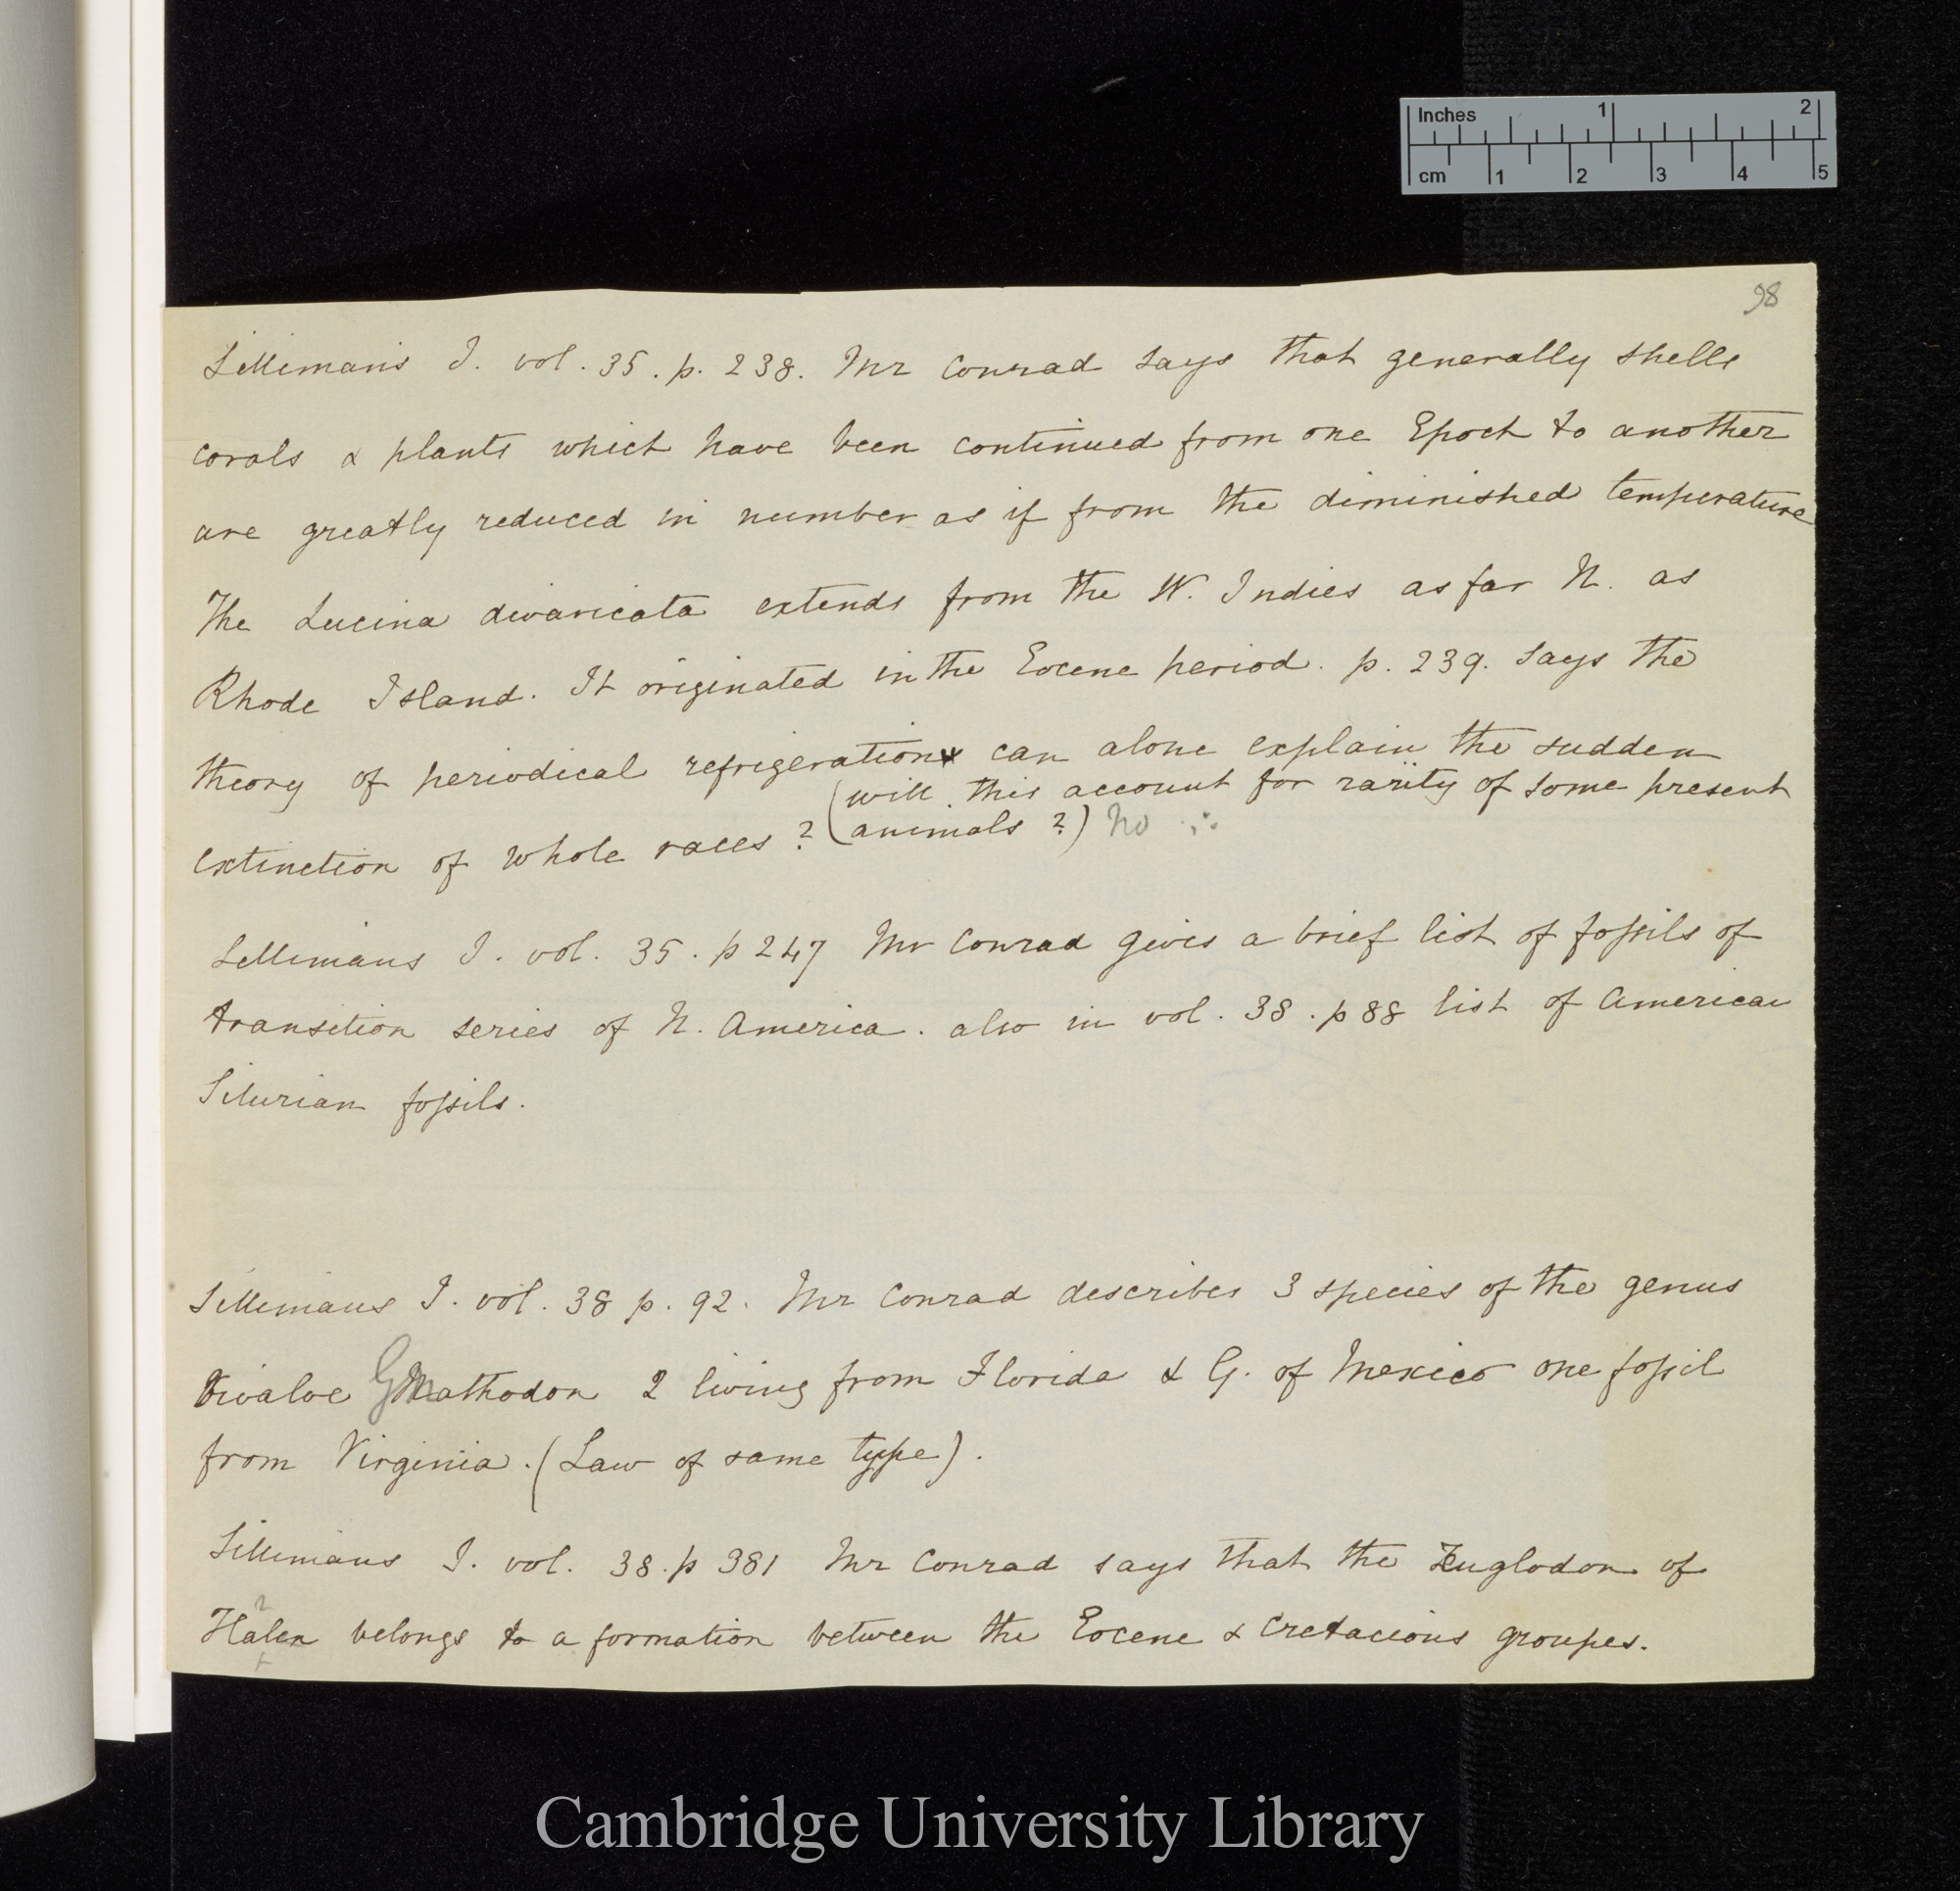 Inches 1 2
cm 1 2 3 4 5
98
Sillimans J. vol. 35. p. 238. Mr Conrad says that generally shells
corals & plants which have been continued from one Epoch to another
are greatly reduced in number as if from the diminished temperature
The Lucina divaricata extends from the W. Indies as far N. as
Rhode Island. It originated in the Eocene period. p. 239. says the
theory of periodical refrigeration can alone explain the sudden
extinction of whole races? (will this account for rarity of some present
animals?) No ∴
Sillimans J. vol. 35. p 247 Mr Conrad gives a brief list of fossils of
transition series of N. America. also in vol. 38. p 88 list of American
Silurian fossils.
Sillimans J. vol. 38 p. 92. Mr Conrad describes 3 species of the genus
Bivalve Gnathodon 2 living from Florida & G. of Mexico one fossil
from Virginia. (Law of same type).
Sillimans J. vol. 38. p 381 Mr Conrad says that the Zuglodon of
belongs to a formation between the Eocene & Cretacious groupes.
Cambridge University Library